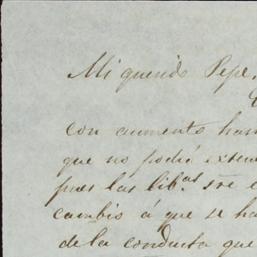 Mi querido Pepe,
con aumento han
que no podia exten
pues las lib.as sre e
cambio á que se ha
de la conducta que